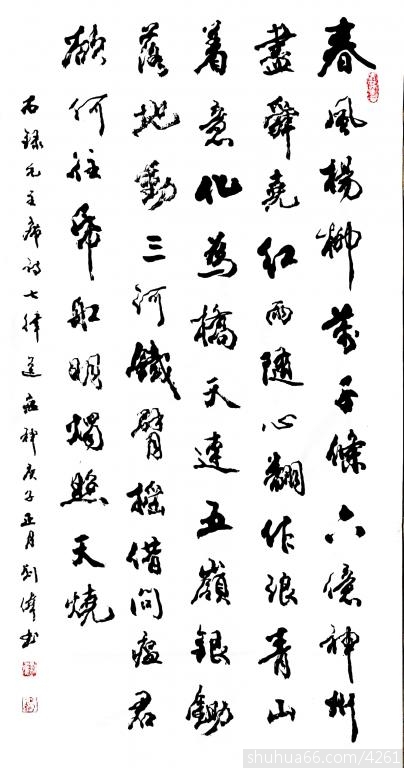 春風楊柳萬千條六億神州
盡舜堯紅雨隨心翻作浪青山
着意化為橋天連五嶺銀鋤
落地動三河鐵臂搖借問瘟君
欲何往帋舩明燭照天燒
右錄毛主席詩七律送瘟神庚子正月劉偉書
shuhua66.com/4261